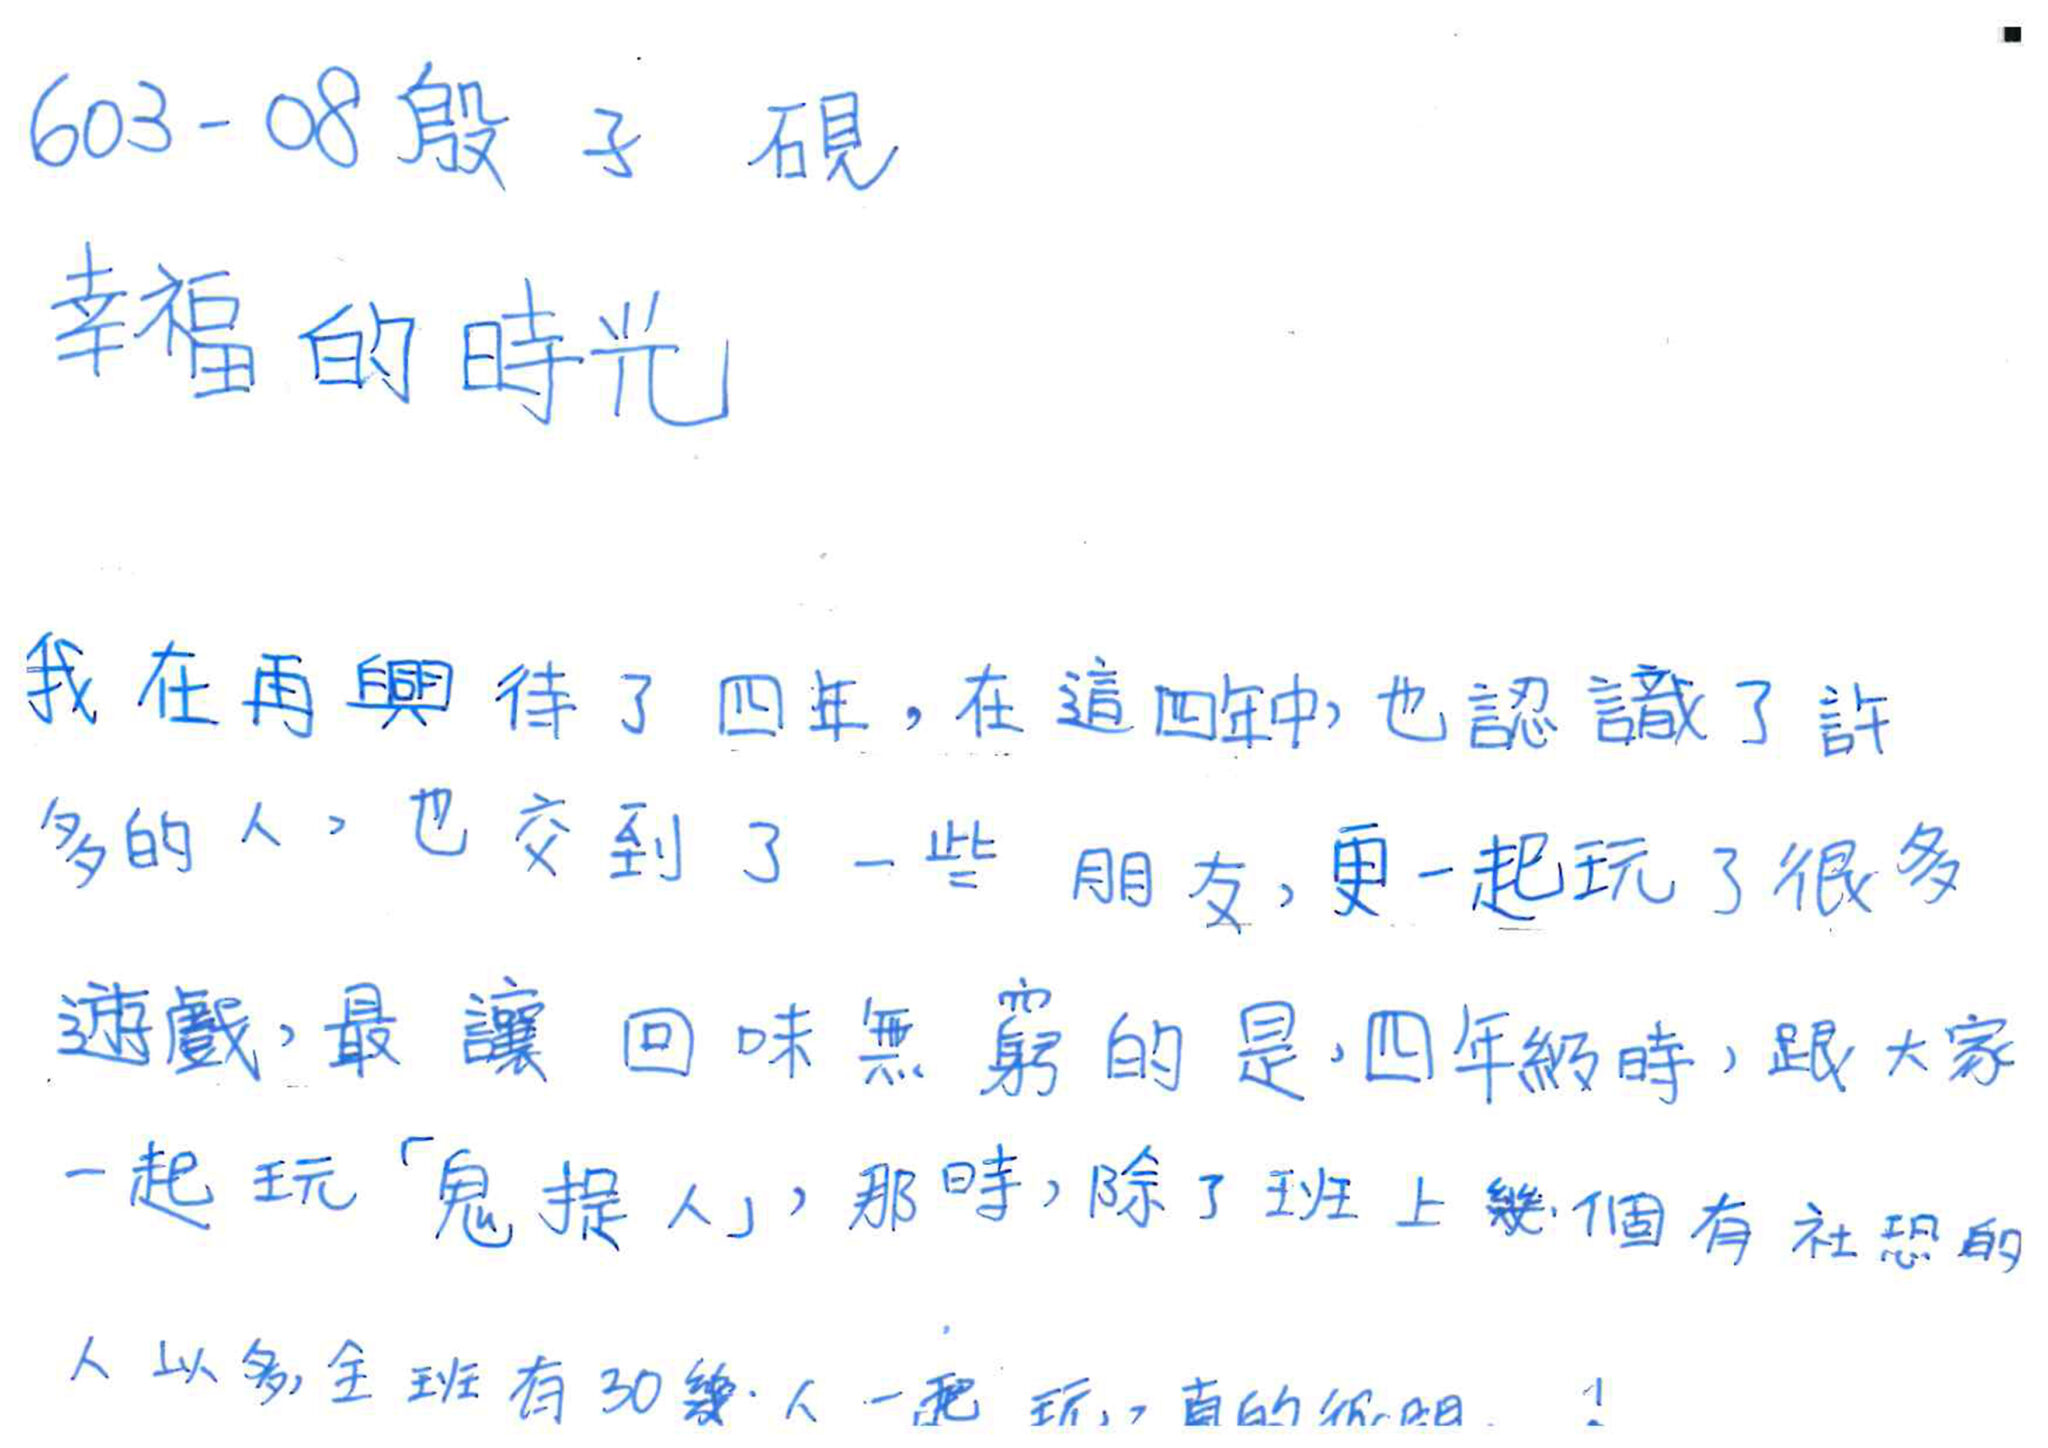 603-08殷子硯
幸福的時光
我在再興待了四年,在這四年中,也認識了許
多的人,也交到了一些朋友,更一起玩了很多
遊戲,最讓回味無窮的是,四年級時,跟大家
一起玩「鬼捉人」,那時,除了班上幾個有社恐的
人以多,全班有30幾人一起玩,真的很 !